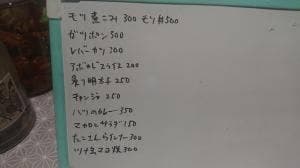 モツ煮コミ 300 モツ丼500
ガツポン 300
レバーカツ 300
アボカドスライス 200
炙り明太子 250
チャンジャ 250
バリのカレー 350
マカロニサラダ 150
たこさんウィンナー300
ツナ玉マヨ焼 300